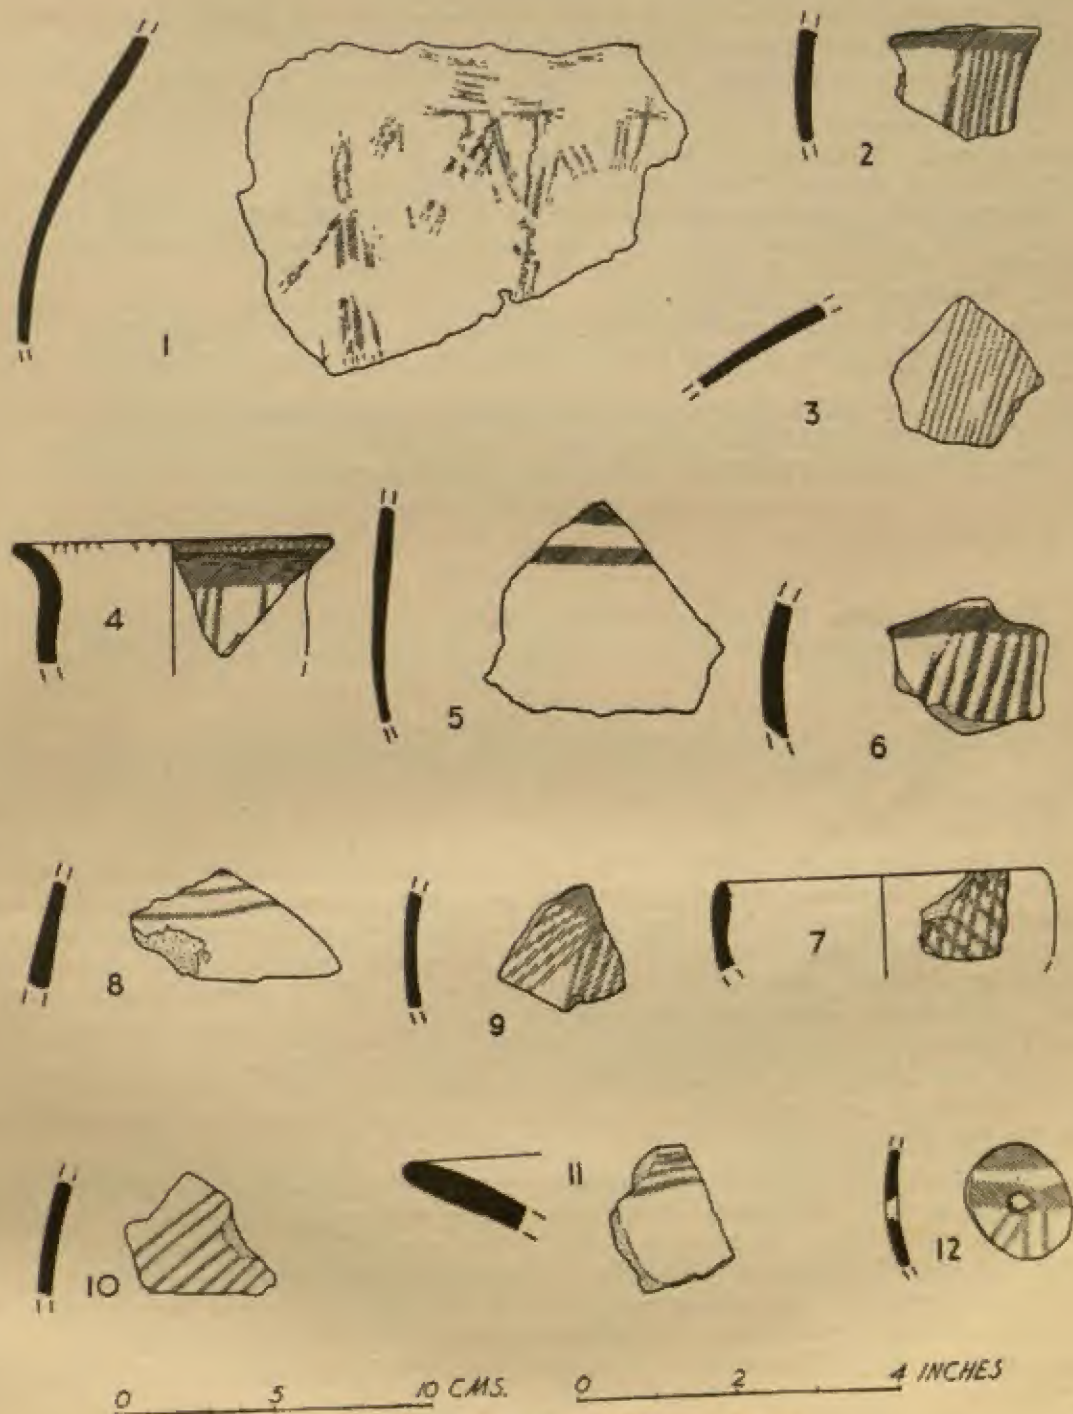 1
2
3
4
5
6
8
9
7
10
11
12
0 5 10 CMS.
0 2 4 INCHES